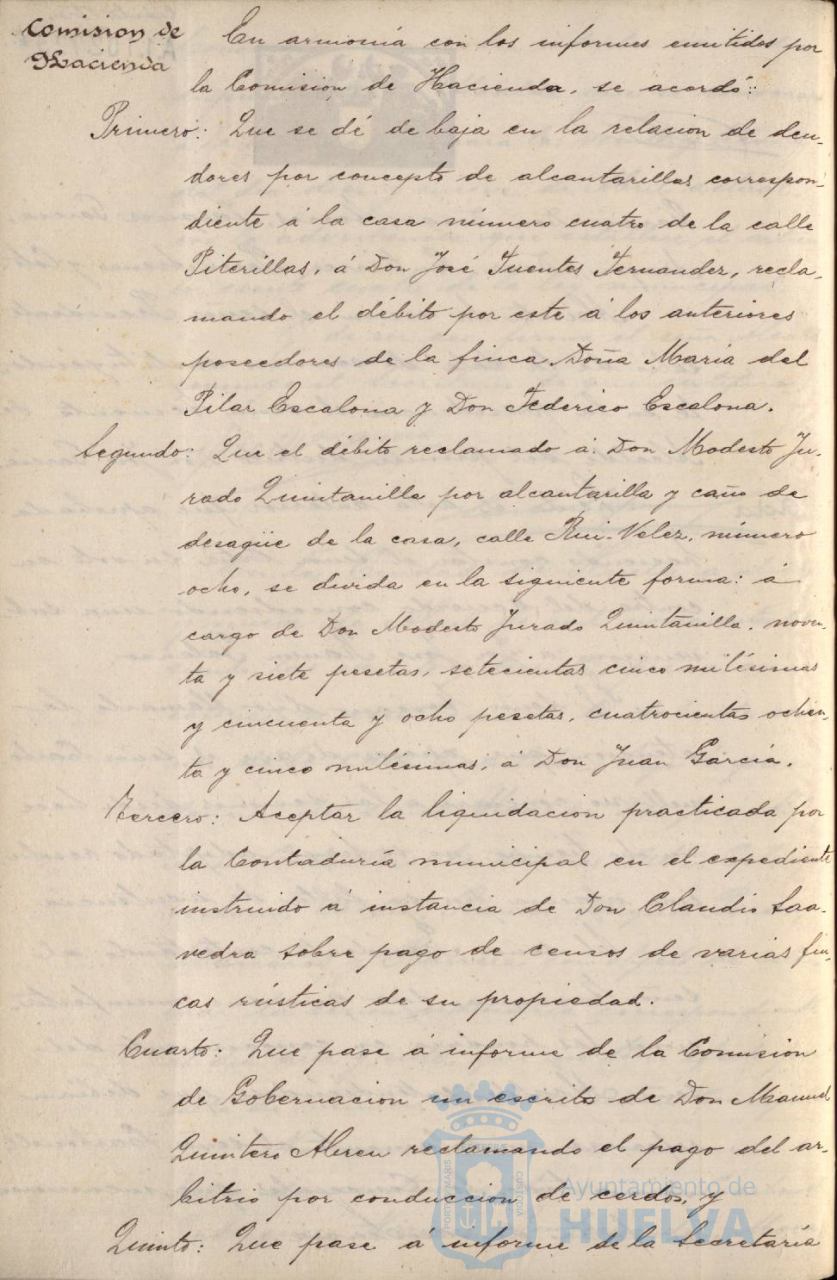 Comision de
Hacienda
En armonía con los informes emitidos por
la Comision de Hacienda, se acordó:
Primero: Que se dé de baja en la relacion de deu-
dores por concepto de alcantarillas correspon-
diente á la casa número cuatro de la calle
Piterillas, á Don José Fuentes Fernandez, recla-
mando el débito por este á los anteriores
poseedores de la finca Doña María del
Pilar Escalona y Don Federico Escalona.
Segundo: Que el débito reclamado á Don Modesto Ju-
rado Quintanilla por alcantarilla y caño de
desagüe de la casa, calle Rui-Velez, número
ocho, se divida en la siguiente forma: á
cargo de Don Modesto Jurado Quintanilla, noven-
ta y siete pesetas, setecientas cinco milésimas
y cincuenta y ocho pesetas, cuatrocientas ochen-
ta y cinco milésimas, á Don Juan García.
Tercero: Aceptar la liquidacion practicada por
la Contaduría municipal en el expediente
instruido á instancia de Don Claudio Saa-
vedra sobre pago de censos de varias fin-
cas rústicas de su propiedad.
Cuarto: Que pase á informe de la Comision
de Gobernacion un escrito de Don Manuel
Quintero Abreu reclamando el pago del ar-
bitrio por conduccion de cerdos, y
Quinto: Que pase á informe de la Secretaría
Ayuntamiento de
HUELVA